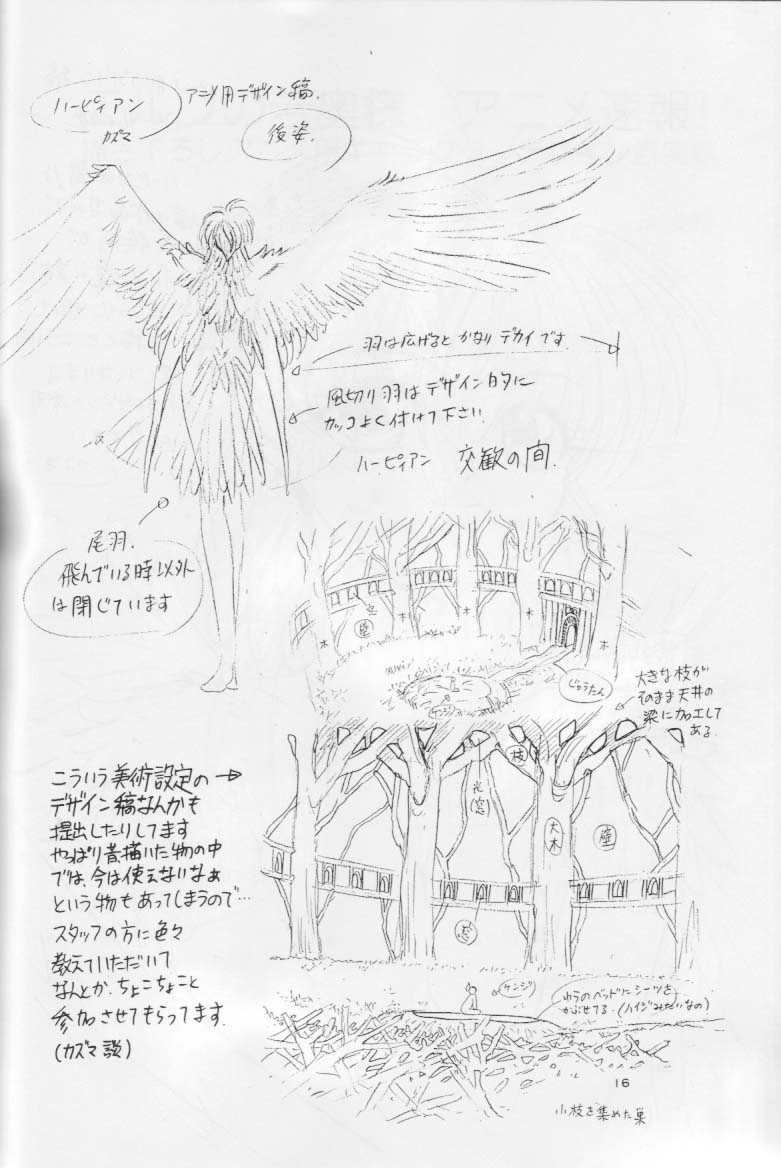 ハーピィアン
カズマ
アニメ用デザイン稿.
後姿.
羽は広げると かなり デカイです
風切り羽はデザイン的に
カッコよく付けて下さい
ハーピィアン 交歓の間.
尾羽.
飛んでいる時以外
は閉じています
窓
壁
木
木
木
木
じゅうたん
ケンジ
大きな枝が
そのまま天井の
梁に加工して
ある
枝
光(窓)
大木
壁
窓
こういう美術設定の→
デザイン稿なんかも
提出したりしてます
やっぱり昔描いた物の中
では、今は使えないなぁ
という物もあってしまうので…
スタッフの方に色々
教えていただいて
なんとか、ちょこちょこと
参加させてもらってます.
(カズマ 談)
ケンジ
わらのベッドにシーツを
かぶせてる.(ハイジみたいなの)
16
小枝を集めた巣